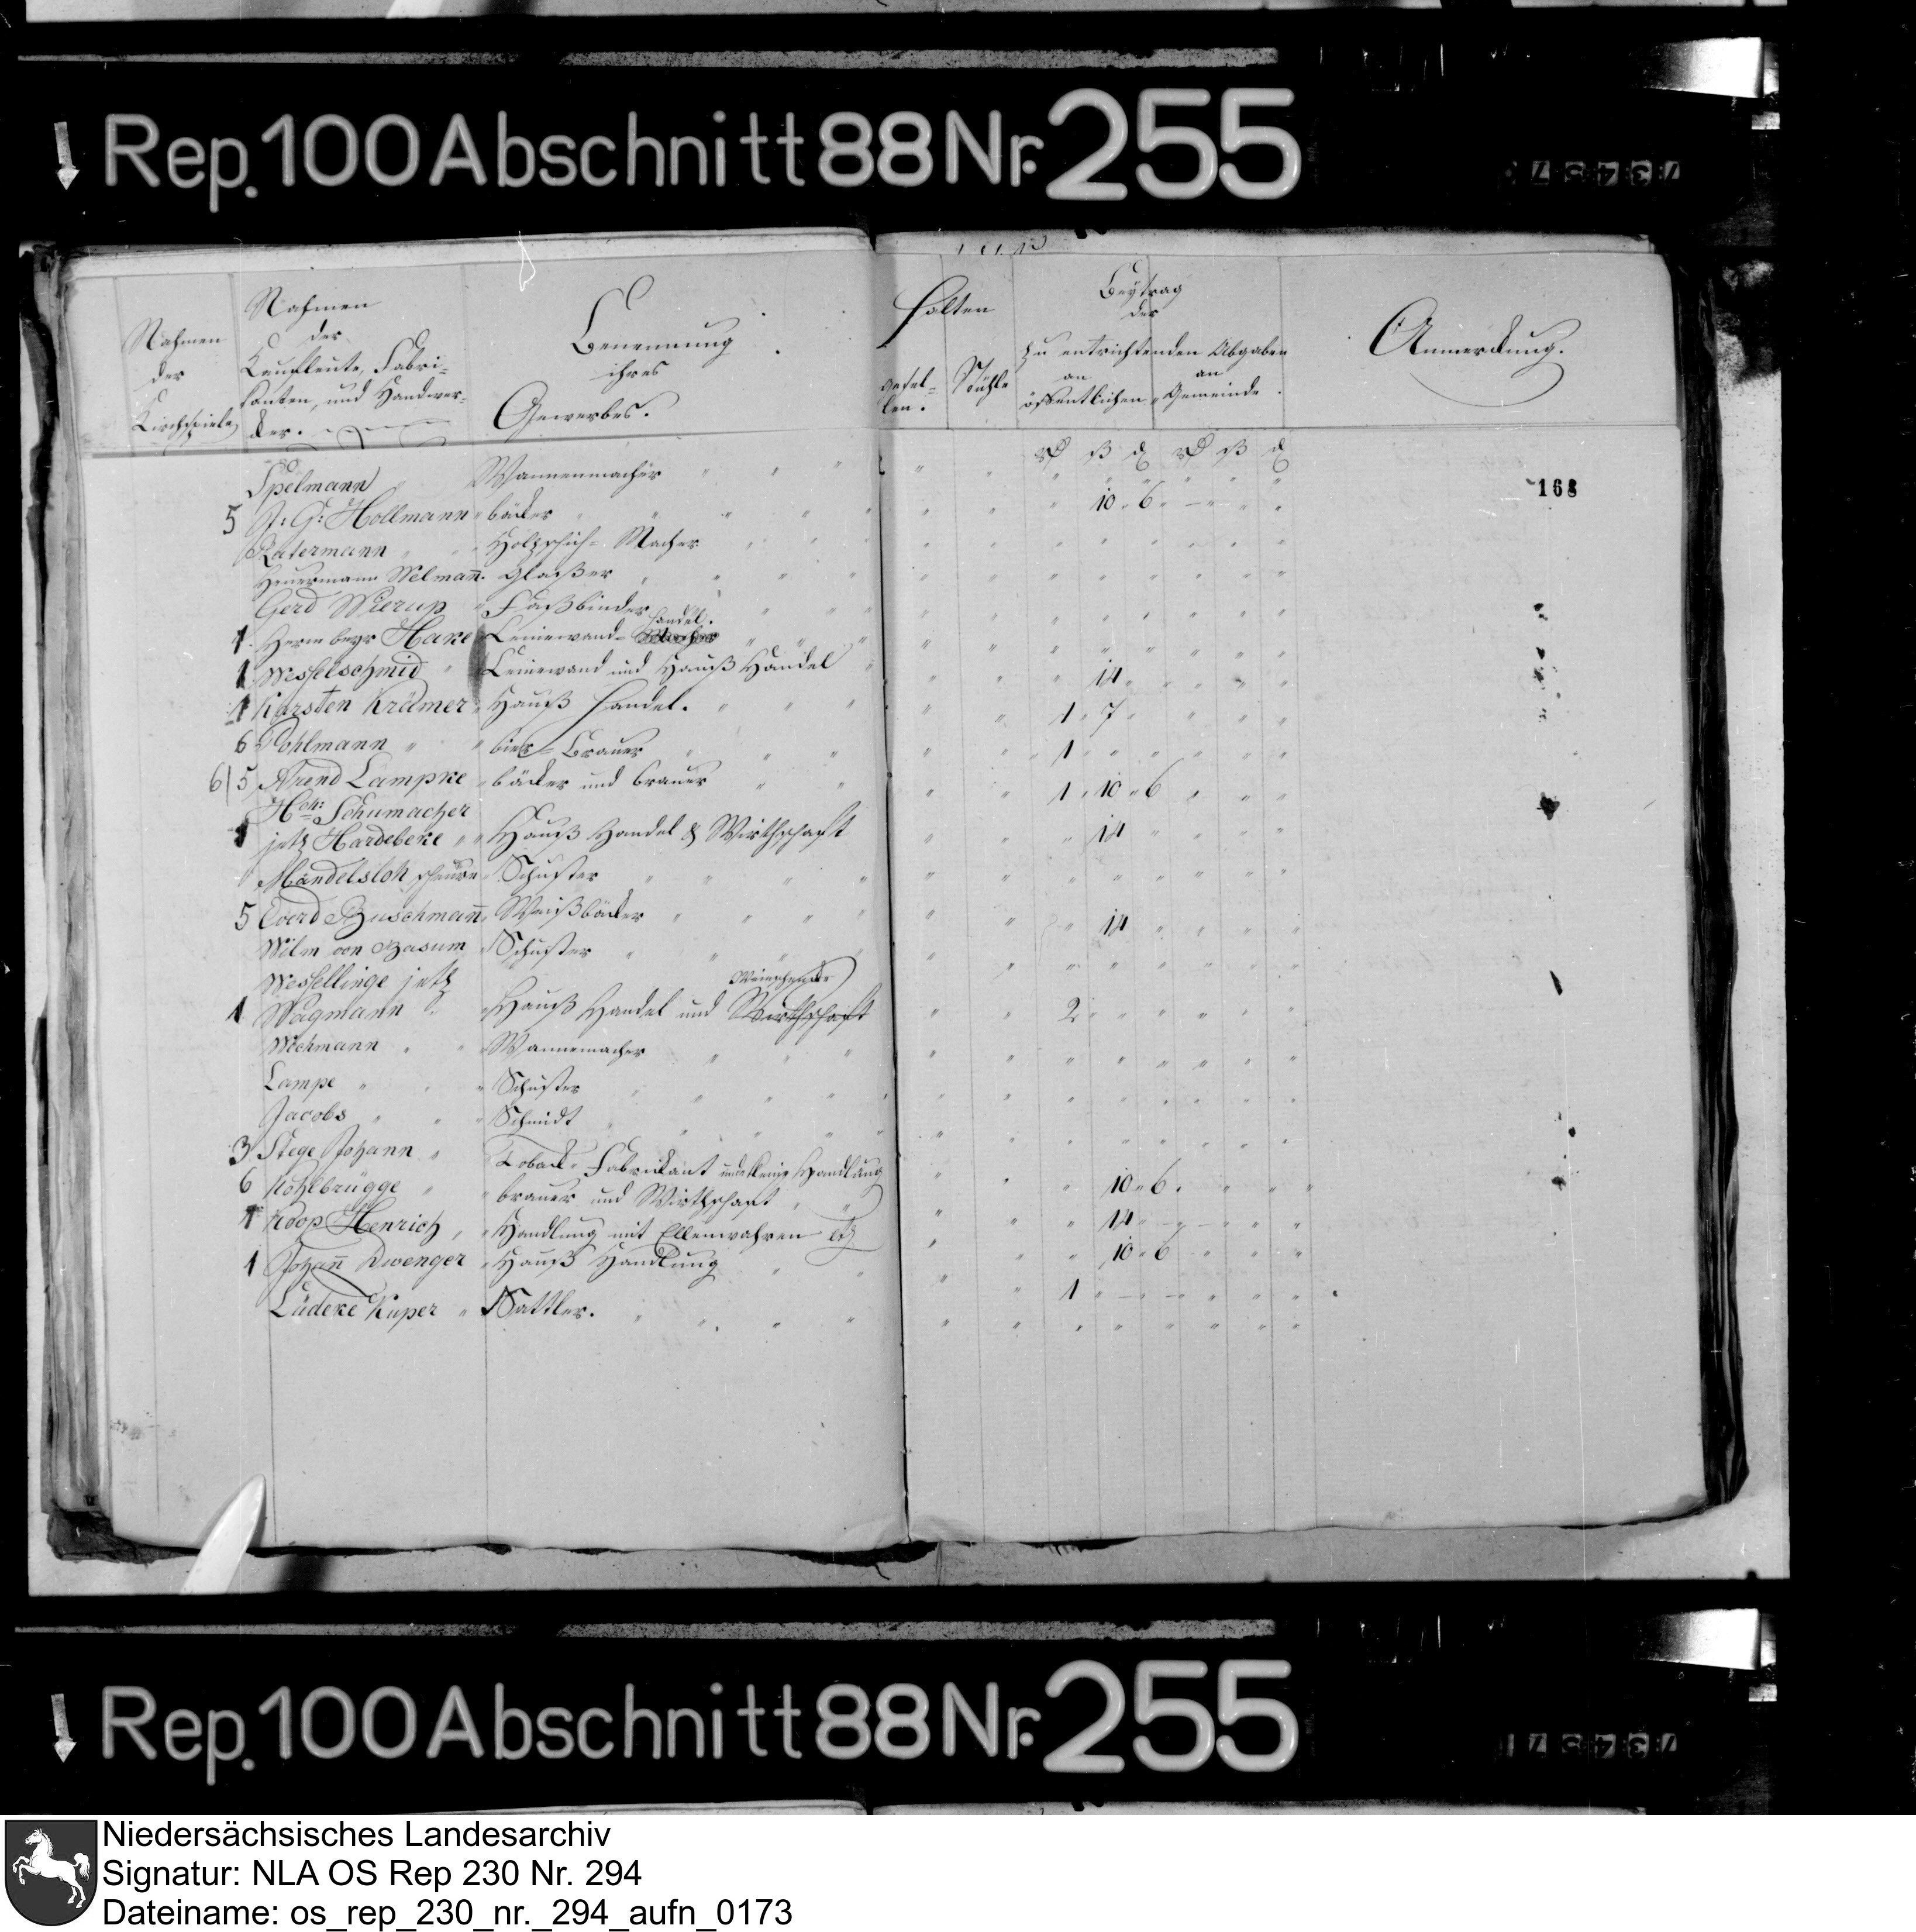 Rep. 100 Abschnitt 88 Nr. 255
Nahmen
der
Kirchspiele
Nahmen
der
Kaufleute, Fabri-
kanten, und Handwer-
cker.
Benennung
ihres
Gewerbes.
Halten
Gesel-
len.
Stühle
Beÿtrag
der
zu entrichtenden Abgaben
an
öffentlichen
an
Gemeinde
Anmerckung.
rƮ ß ₰ rƮ ß ₰
168
Spelmann Wannenmacher " " "
5 J: G: Hollmann bäcker " 10 " 6 " — "
Ratermann Holzschuh- Macher
Heuermann Welman̄ Glaßer
Gerd Wierup Faßbinder
1 Herm beyr Hake Leinewand- Handel.
1 Wesselschmid Leinewand und Hauß Handel 14
1 Karsten Krämer Hauß Handel. 1 " 7 "
6 Pohlmann bier- Brauer 1 "
6/5 Arend Lampke bäcker und brauer 1 " 10 " 6
Schumacher
1 jetz Hardebeke Hauß Handel & Wirthschaft 14
Mandelsloh scheure Schuster
5 Everd Buschman̄ Weißbäcker 14
Wilm von Basum Schuster
Wessellinge jetz
1 Wagmann Hauß Handel und Wirthschaft Weinschencke 2 "
Wichmann Wannemacher
Lampe Schuster
Jacobs Schmidt
3 Stege Johann Toback- Fabrickant und kleine Handlung
6 Kohlbrügge brauer und Wirthschaft 10 " 6 "
1 Koop Henrich Handlung mit Ellenwahren etz 14
1 Johan̄ Dwenger Hauß Handlung 10 " 6
1 "
Lüdeke Kuper Sattler.
Rep. 100 Abschnitt 88 Nr. 255
Niedersächsisches Landesarchiv
Signatur: NLA OS Rep 230 Nr. 294
Dateiname: os_rep_230_nr._294_aufn_0173